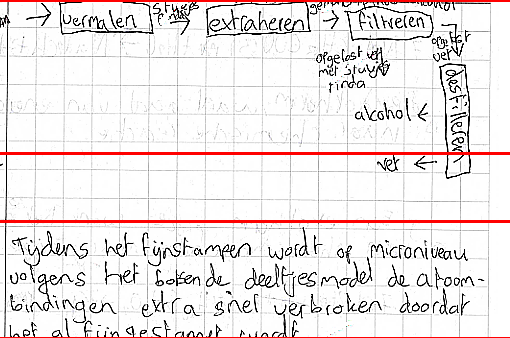 vermalen
extraheren
filtreren
opgelost vet
met stukjes
rinda
opgelost
vet
destilleren
alcohol
vet
Tijdens het fijnstampen wordt op microniveau
volgens het botsende deeltjesmodel de atoom-
bindingen extra snel verbroken doordat
het al fijngestampt wordt